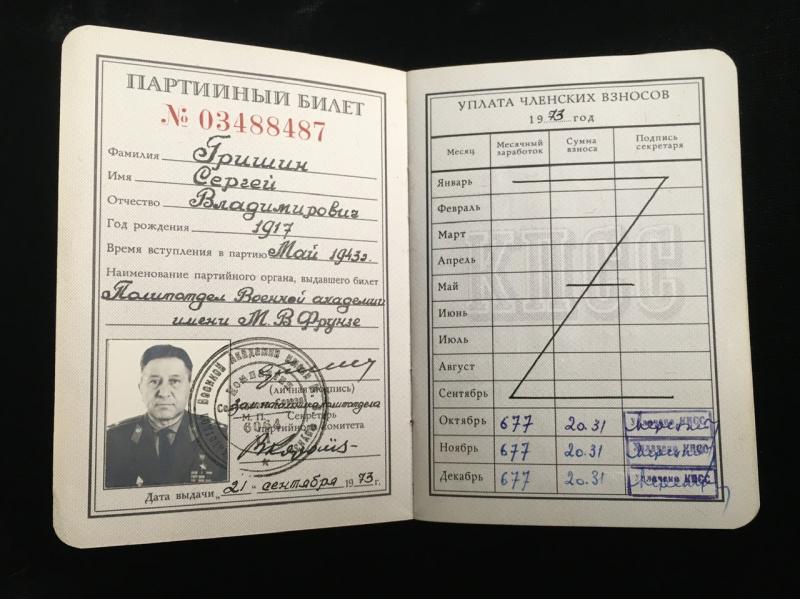 ПАРТИЙНЫЙ БИЛЕТ
№ 03488487
Фамилия Гришин
Имя Сергей
Отчество Владимирович
Год рождения 1917
Время вступления в партию Май 1943г.
Наименование партийного органа, выдавшего билет
Политотдел Военной академии
имени М.В Фрунзе
(личная подпись)
Зам. начальника политотдела
М. П. Секретарь
партийного комитета
Дата выдачи „21" сентября 1973 г.
УПЛАТА ЧЛЕНСКИХ ВЗНОСОВ
1973 год
Месяц Месячный заработок Сумма взноса Подпись секретаря
КПСС
Январь
Февраль
Март
Апрель
Май
Июнь
Июль
Август
Сентябрь
Октябрь 677 20.31 Уплачено КПСС
Ноябрь 677 20.31 Уплачено КПСС
Декабрь 677 20.31 Уплачено КПСС